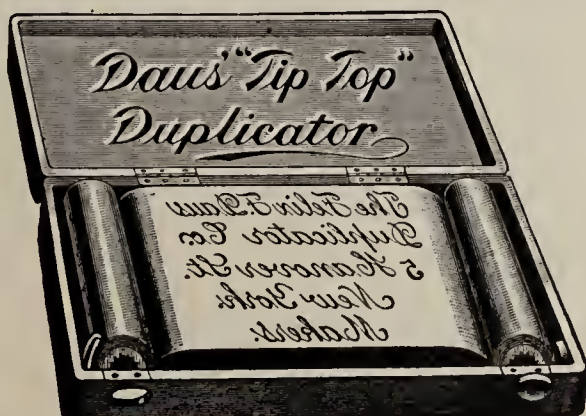 Daus' "Tip Top"
Duplicator
The Felix F. Daus
Duplicator Co.
5 Hanover St.
New York.
Makers.